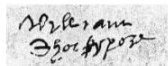 William
Shackspere